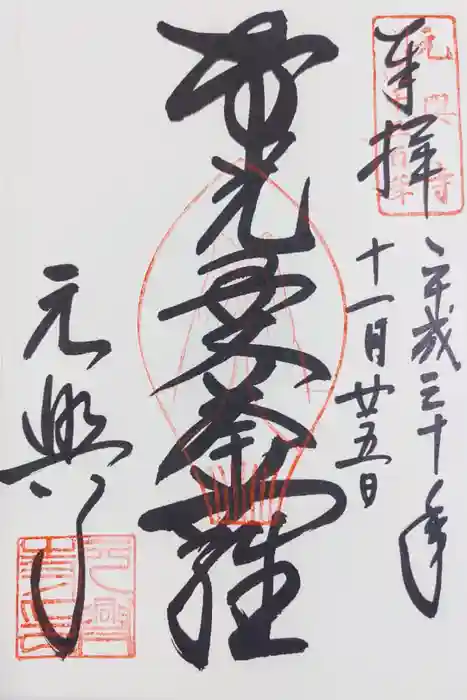 奉拝
元興寺
平成三十年
十一月廿五日
智光曼荼羅
元興寺